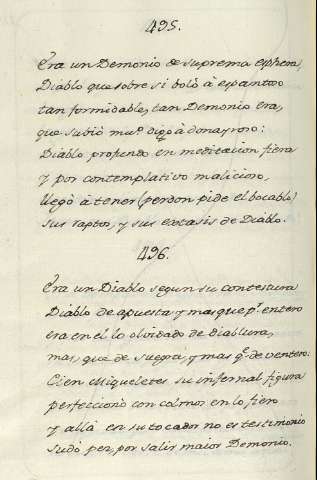 495.
Era un Demonio de suprema esphera,
Diablo que sobre si boló à espantoso
tan formidable, tan Demonio era,
que subió mu.º à donayroso:
Diablo profundo en meditacion fiera
y por contemplativo malicioso,
llegò à tener (perdon pide el bocablo)
sus raptos, y sus extasis de Diablo.
496.
Era un Diablo segun su contestura
Diablo de apuesta, y mas que p.r entero
era en el lo olvidado de diablura,
mas, que de suegra, y mas q.e de ventero:
Cien Miqueletes su infernal figura
perfeccionó con colmos en lo fiero
y allà en su tocador no es testimonio
sudò pez, por salir maior Demonio.